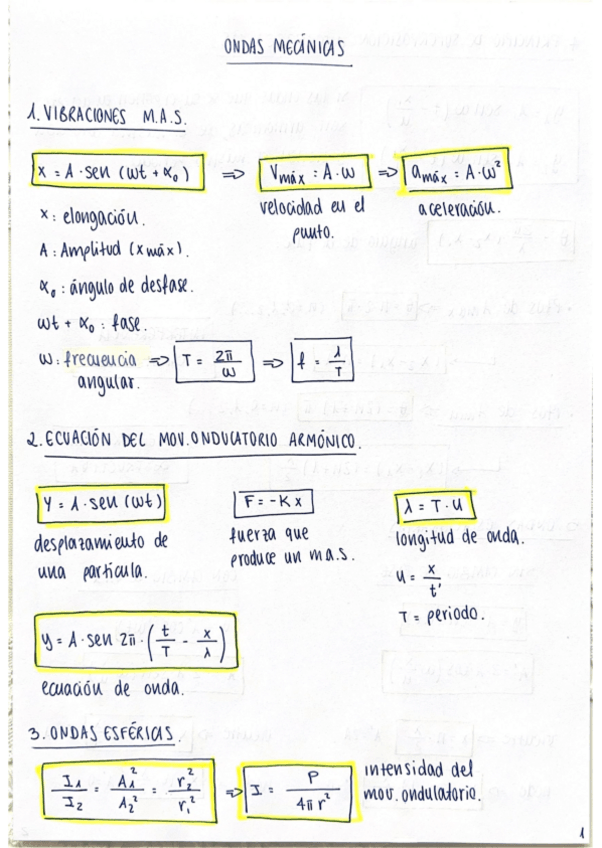 ONDAS MECÁNICAS
1. VIBRACIONES M.A.S.
x = A · sen (wt + α₀) => Vmáx = A · w => amáx = A · w²
velocidad en el punto.
aceleración.
x: elongación.
A: Amplitud (xmáx).
α₀: ángulo de desfase.
wt + α₀: fase.
w: frecuencia angular. => T = 2π/w => f = λ/T
2. ECUACIÓN DEL MOV. ONDULATORIO ARMÓNICO.
Y = A · sen (wt)
desplazamiento de
una partícula.
F = -K x
fuerza que
produce un m.a.s.
λ = T · u
longitud de onda.
u = x/t'
T = periodo.
y = A · sen 2π · (t/T - x/λ)
ecuación de onda.
3. ONDAS ESFÉRICAS.
I₁/I₂ = A₁²/A₂² = r₂²/r₁² => I = P/4π r²
intensidad del
mov. ondulatorio.
1